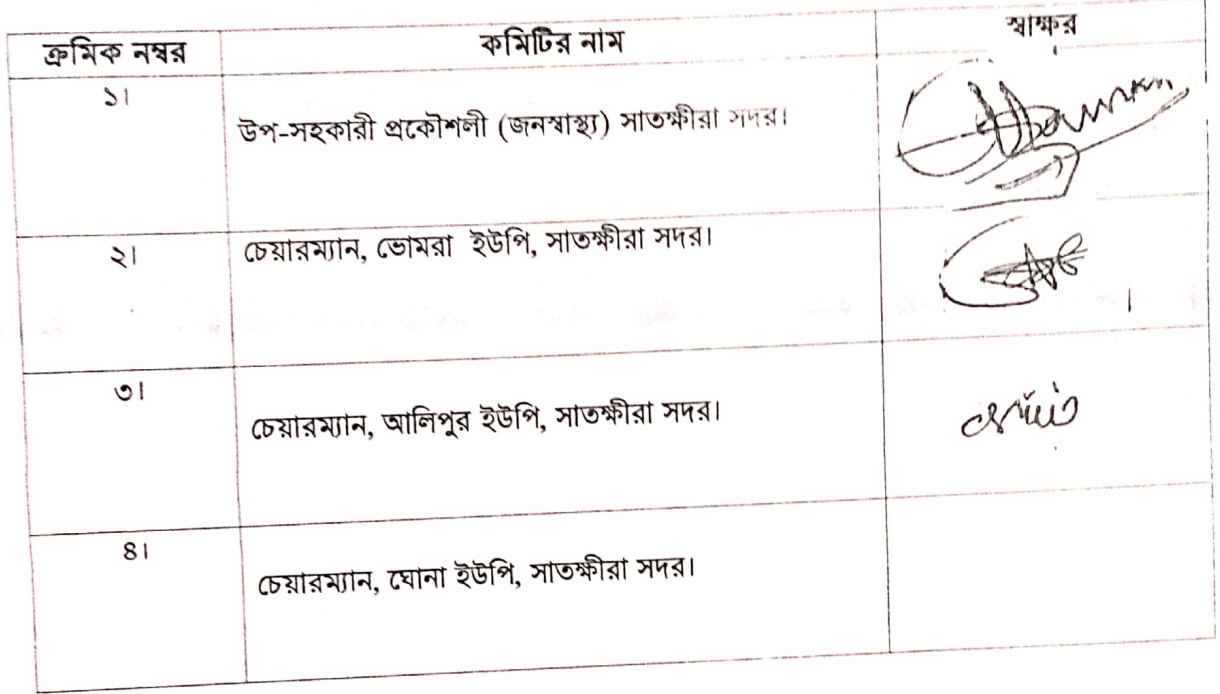 ক্রমিক নম্বর কমিটির নাম স্বাক্ষর
১। উপ-সহকারী প্রকৌশলী (জনস্বাস্থ্য) সাতক্ষীরা সদর।
২। চেয়ারম্যান, ভোমরা ইউপি, সাতক্ষীরা সদর।
৩। চেয়ারম্যান, আলিপুর ইউপি, সাতক্ষীরা সদর।
৪। চেয়ারম্যান, ঘোনা ইউপি, সাতক্ষীরা সদর।